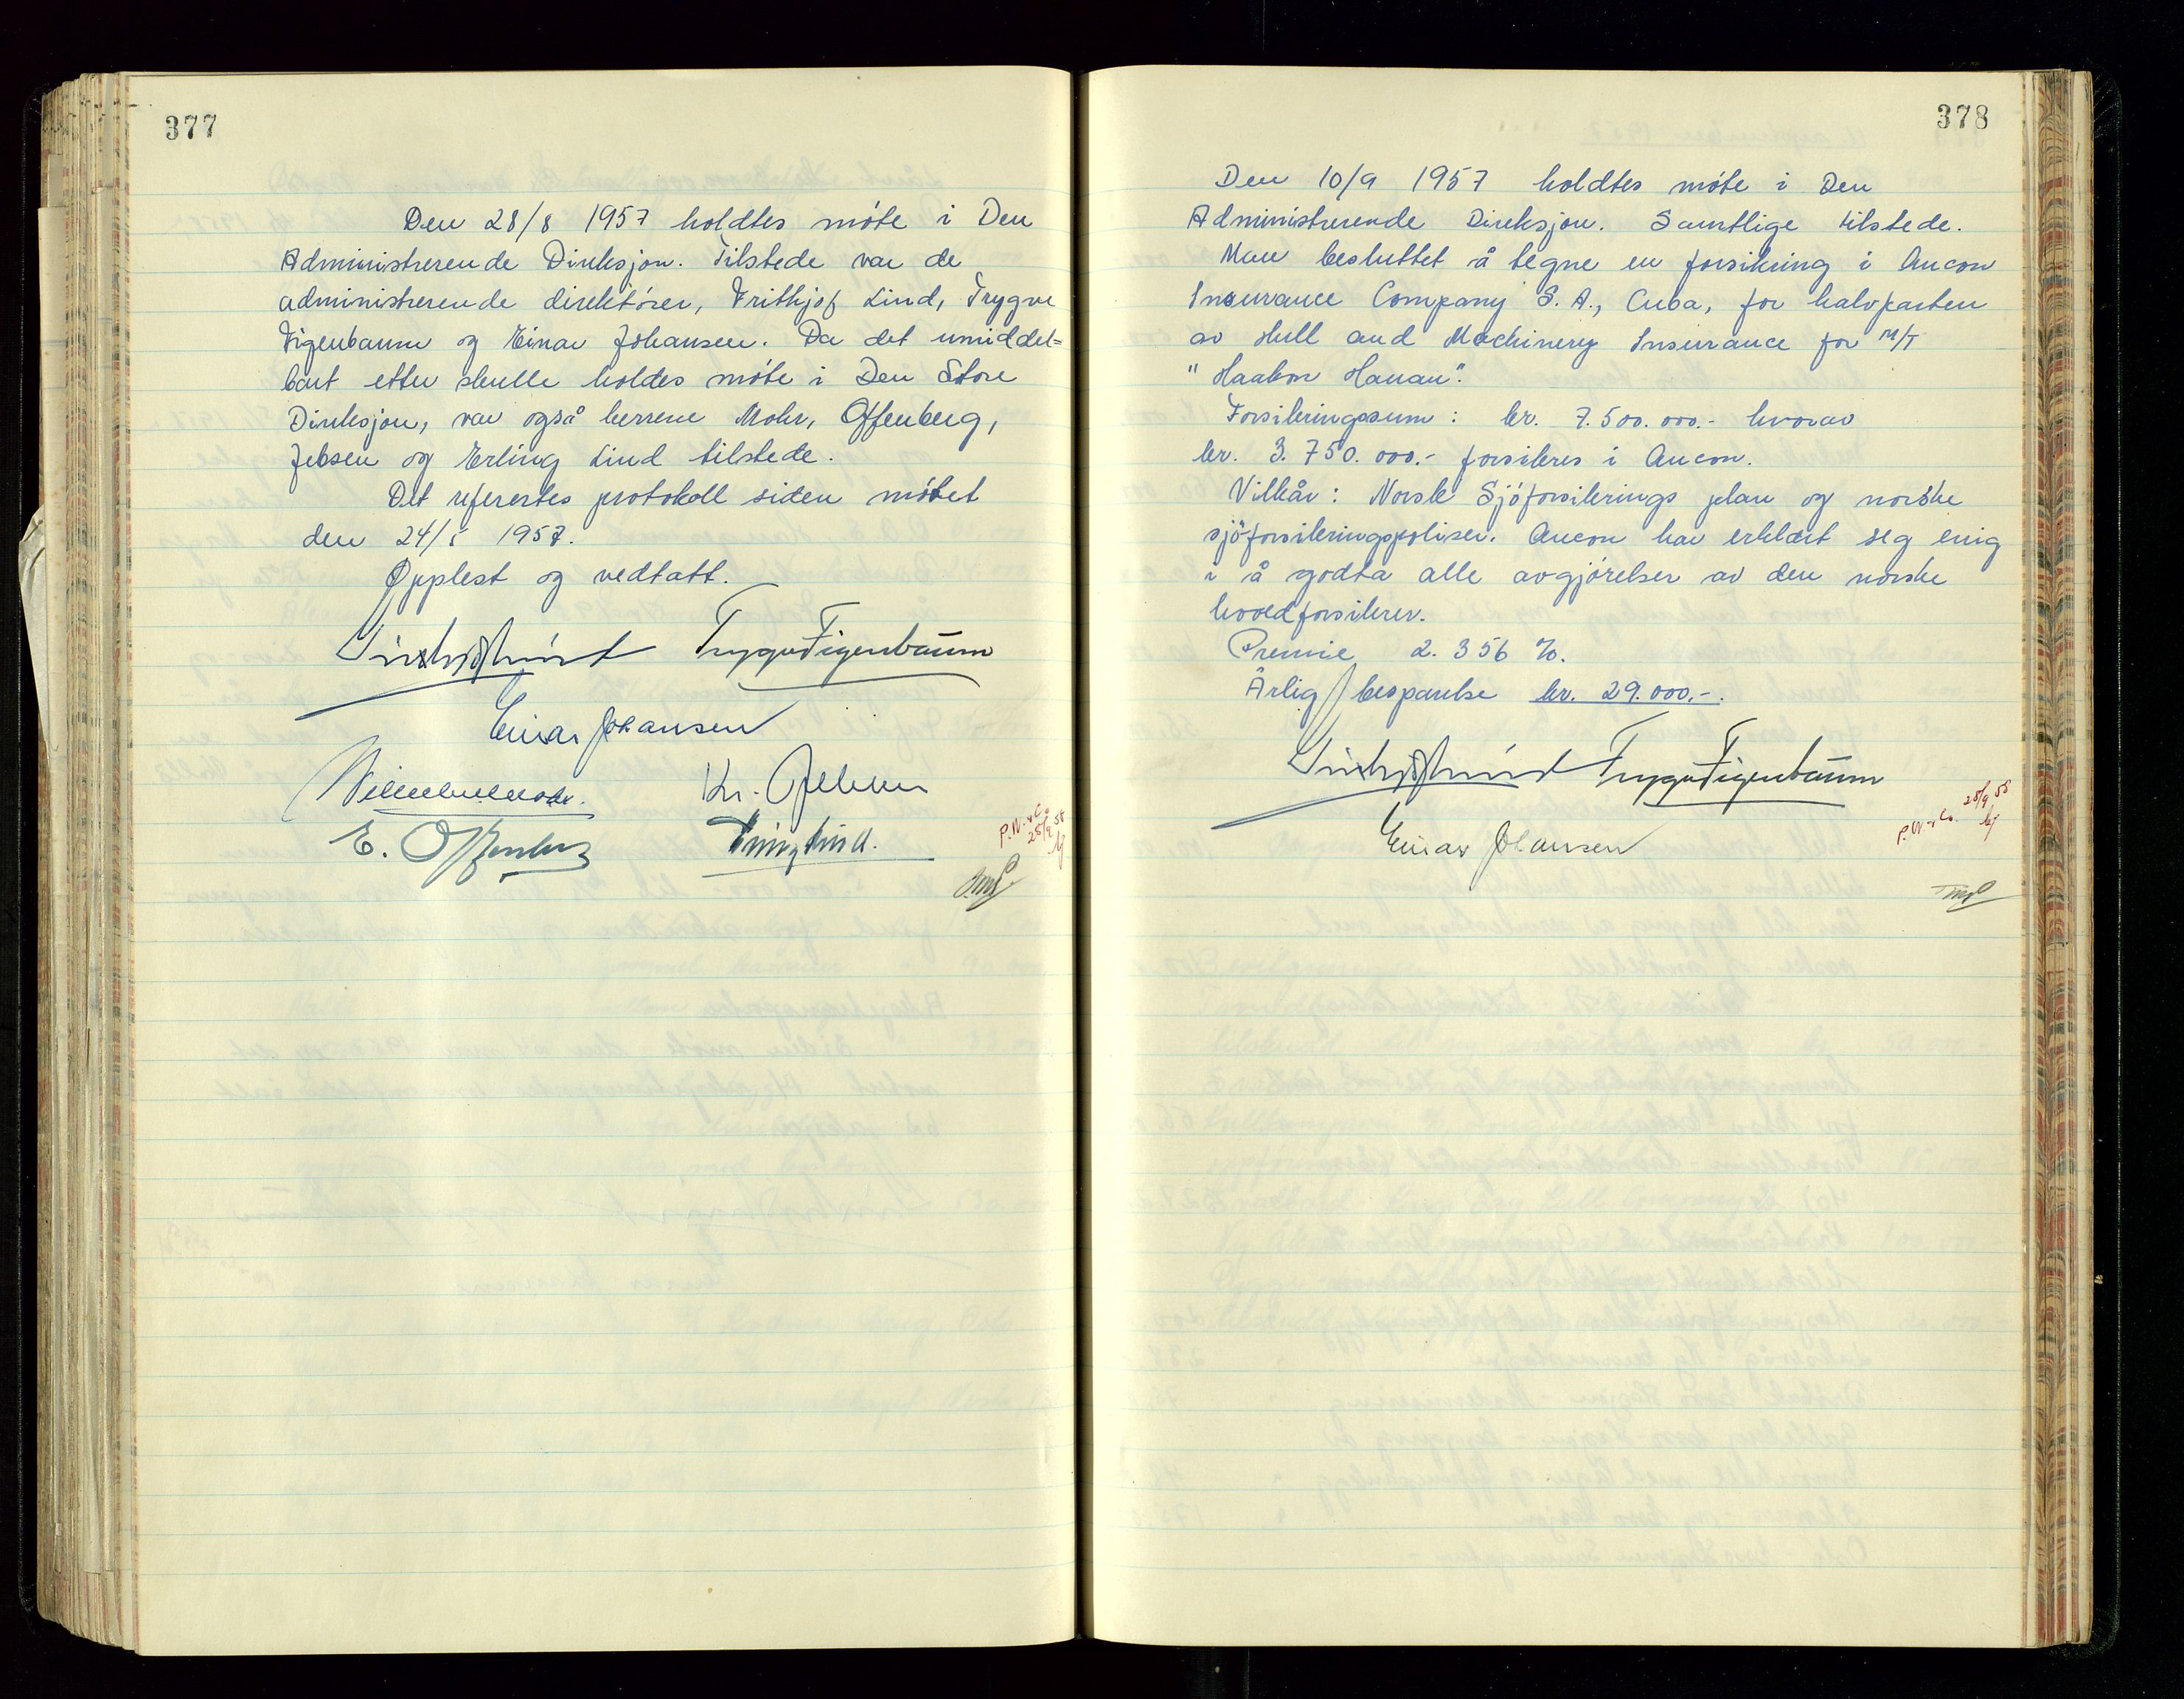 377
Den 28/8 1957 holdtes möte i Den
Administrerende Direksjon. Tilstede var de
administrerende direktörer, Frithjof Lind, Trygve
Figenbaum og Einar Johansen. Da det umiddel=
bart etter skulle holdes möte i Den Store
Direksjon, var også herrene Mohr, Offenberg,
Jebsen og Erling Lind tilstede.
Det refererte protokoll siden mötet
den 24/5 1957.
Opplest og vedtatt.
Frithjof Lind Trygve Figenbaum
Einar Johansen
Kr. Jebsen
E. Offenberg Erling Lind.
P.W. & Co
25/9 58
378
Den 10/9 1957 holdtes möte i Den
Administrerende Direksjon. Samtlige tilstede.
Man besluttet å tegne en forsikring i Ancon
Insurance Company S.A., Cuba, for halvparten
av Hull and Machinery Insurance for M/T
"Haakon Hauan".
Forsikringssum: kr. 7.500.000.- hvorav
kr. 3.750.000.- forsikres i Ancon.
Vilkår: Norsk Sjöforsikrings plan og norske
sjöforsikringspoliser. Ancon har erklært seg enig
i å godta alle avgjörelser av den norske
hovedforsikrer.
Premie 2.356 %.
Årlig besparelse kr. 29.000.-.
Frithjof Lind Trygve Figenbaum
Einar Johansen
P.W. & Co. 25/9 58